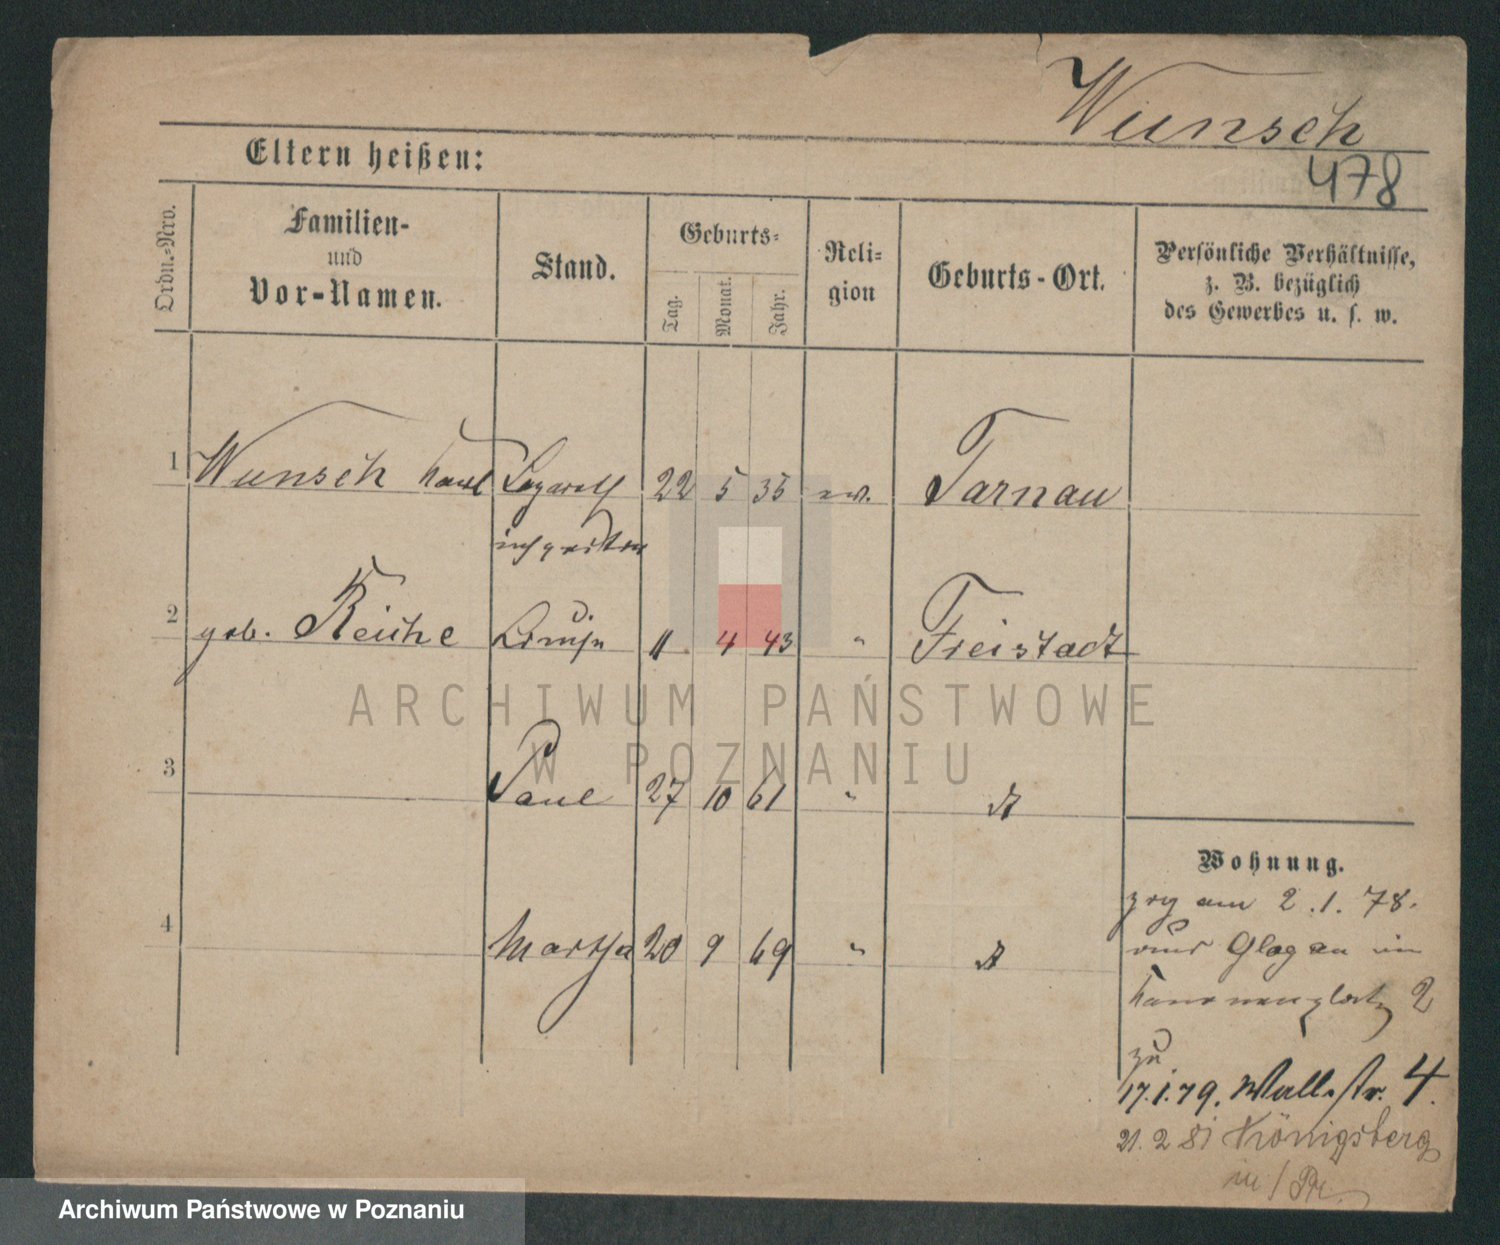 Wunsch
478
Eltern heißen:
Ordn.=Nro.
Familien-
und
Vor-Namen.
Stand.
Geburts=
Tag.
Monat.
Jahr.
Reli=
gion
Geburts-Ort.
Persönliche Verhältnisse,
z. B. bezüglich
des Gewerbes u. s. w.
1 Wunsch Karl Lazareth 22 5 35 ev. Tarnau
inspector
2 geb. Reiche Louise 11 4 43 " Freistadt
3 Paul 27 10 61 "
4 Martha 20 9 69 "
Wohnung.
zog am 2.1.78.
aus Glogau in
Kanonenplatz 2
zu
17.1.79. Wallstr. 4.
21.2 81 Königsberg
in / Pr.
ARCHIWUM PAŃSTWOWE
W POZNANIU
Archiwum Państwowe w Poznaniu